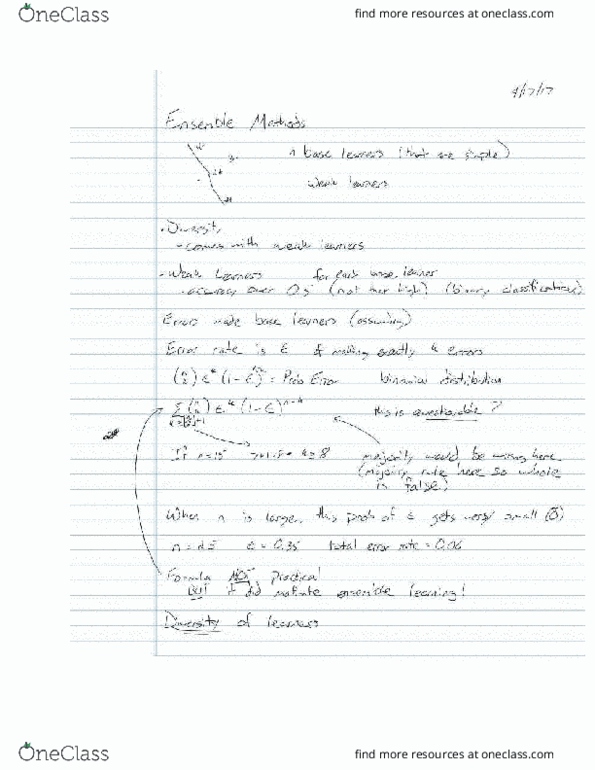 OneClass
find more resources at oneclass.com
4/17/17
Ensemble Methods
n base learners (that are simple)
weak learners
- Diversity
- comes with weak learners
- Weak Learners for each base learner
- accuracy over 0.5 (not that high) (binary classification)
Errors made base learners (assuming)
Error rate is ε of making exactly k errors
(n k) ε^k (1-ε)^n-k = Prob Error binomial distribution
Σ (n k) ε^k (1-ε)^n-k this is questionable?
If n=15 k≥8 majority would be wrong here
(majority vote here so whole
is false)
When n is large, this prob of ε gets very small (0)
n = 25 ε = 0.35 total error rate = 0.06
Formula NOT practical
But it did motivate ensemble learning!
Diversity of learners
OneClass
find more resources at oneclass.com